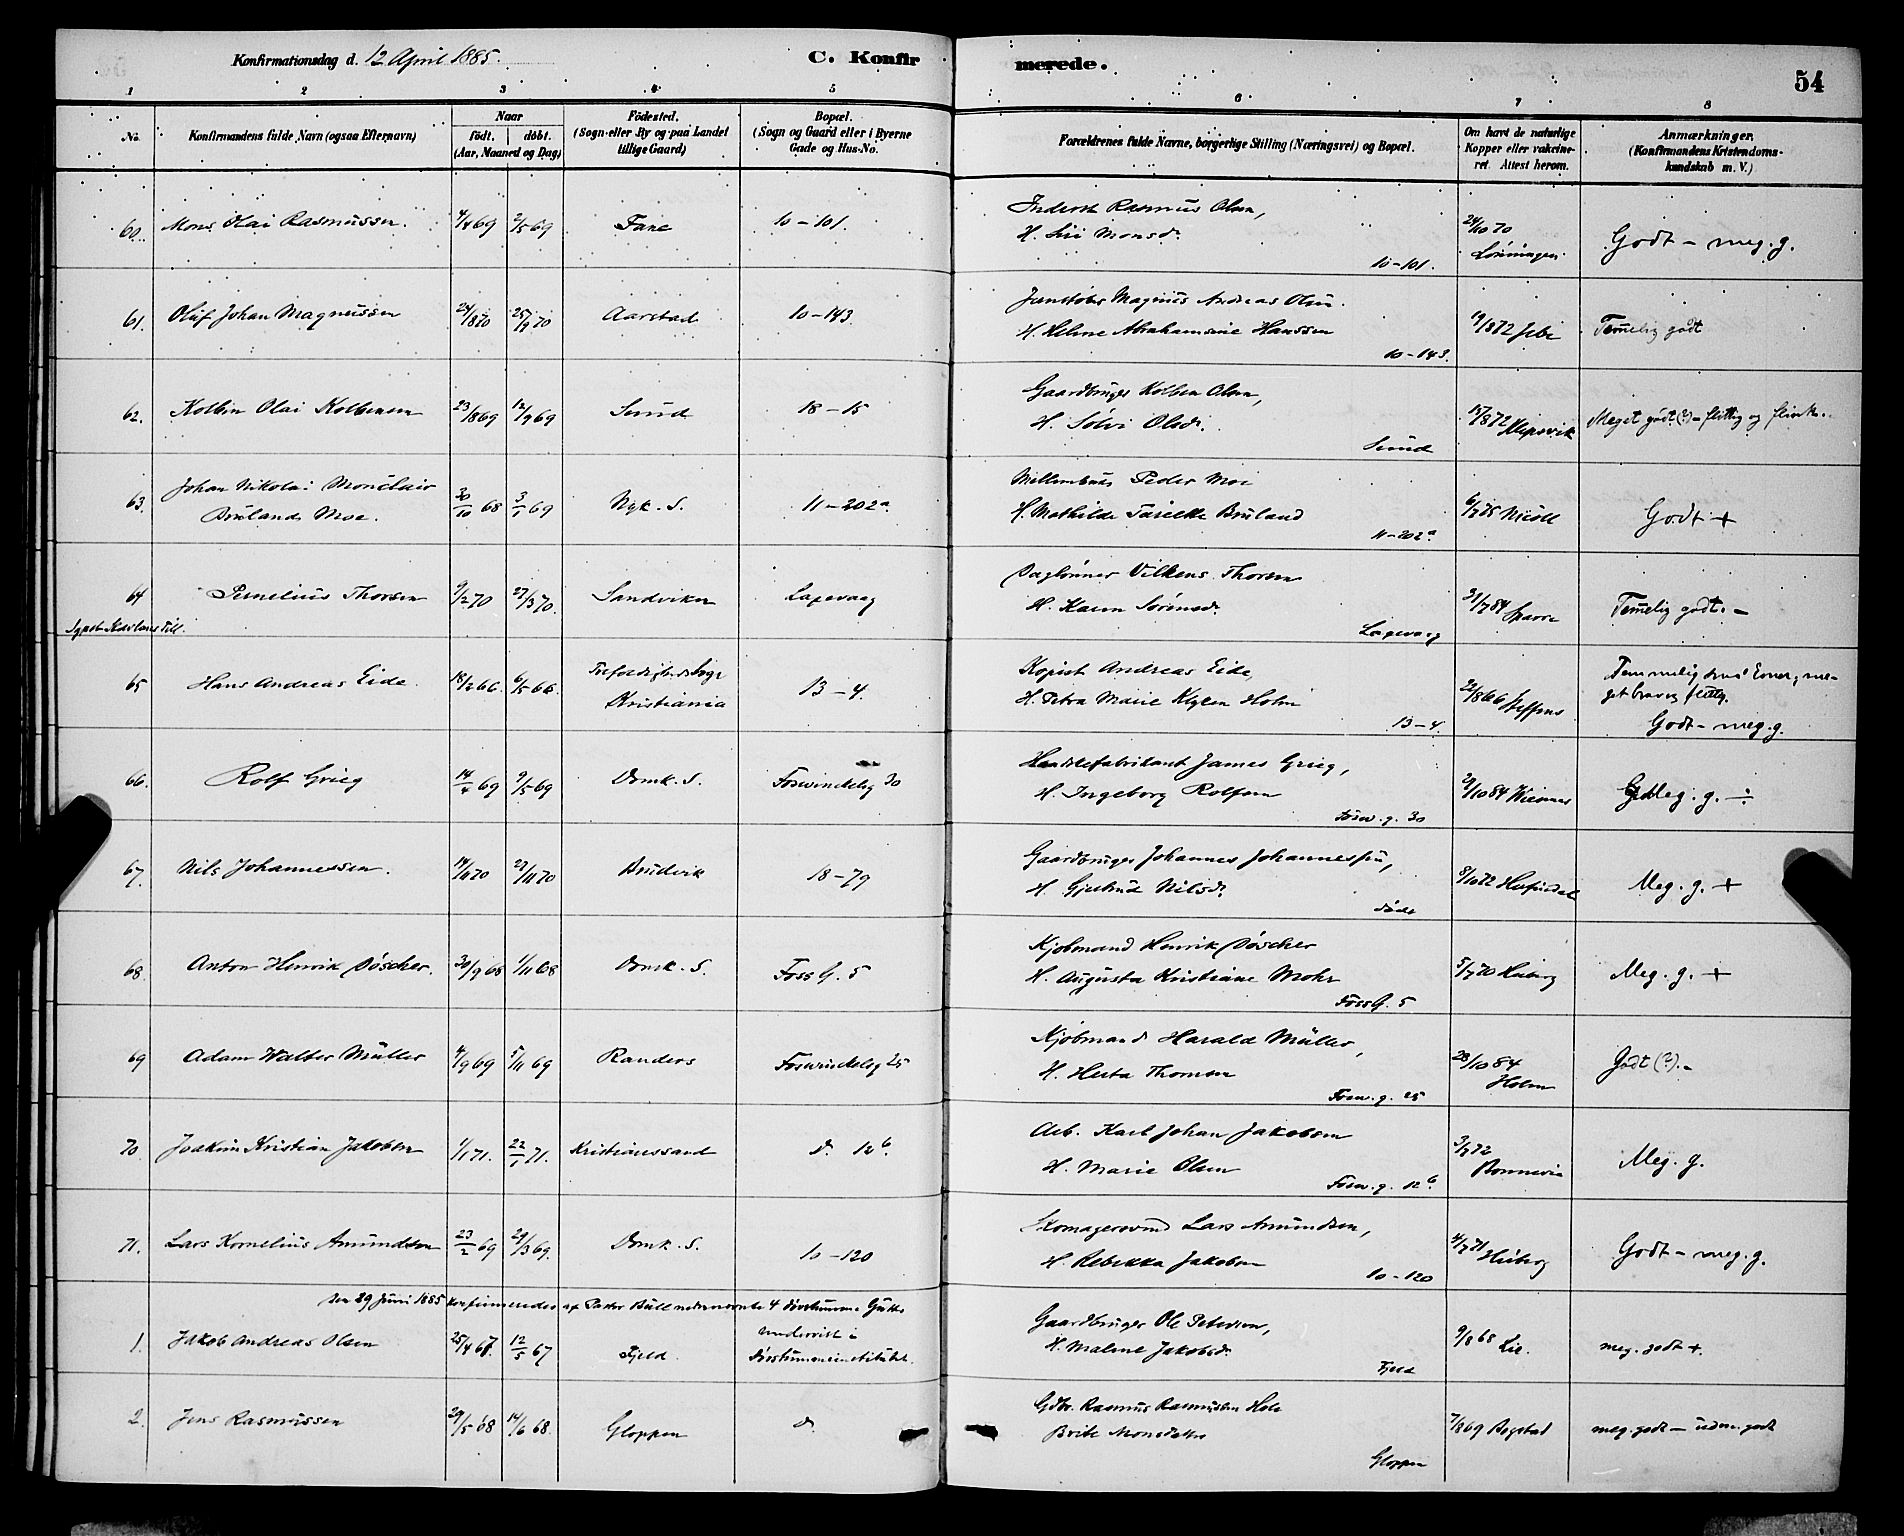 Konfirmationsdag d. 12 April 1885.
C. Konfirmerede.
54
1 2 3 4 5 6 7 8
No.
Konfirmandens fulde Navn (ogsaa Efternavn)
Naar
födt. döbt.
(Aar, Maaned og Dag)
Födested.
(Sogn eller By og paa Landet
tillige Gaard)
Bopæl.
(Sogn og Gaard eller i Byerne
Gade og Hus-No.
Forældrenes fulde Navne, borgerlige Stilling (Næringsvei) og Bopæl.
Om havt de naturlige
Kopper eller vakcine-
ret. Attest herom.
Anmærkninger.
(Konfirmandens Kristendoms-
kundskab m. V.)
60. Mons Olai Rasmussen. 4/4 69 2/5 69 Fane 10-101.
Inderst Rasmus Olsen,
H. Siri Monsd.
10-101.
24/10 70
Godt - meg. g.
61. Oluf Johan Magnussen 24/8 70 25/9 70 Aarstad 10-143.
Magnus Andreas Olsen.
H. Helene Abrahamine Hanssen
10-143.
19/8 72
Temelig godt
62. Kolbein Olai Kolbensen 23/8 69 12/9 69 Sund 18-15
Gaardbruger Kolben Olsen,
H. Sölvi Olsd.
Sund
15/8 72 Klepsvik
Meget godt (?) - flittig og flink.
63. Johan Nikolai Monclair
Bruland Moe. 30/10 68 3/1 69 Nyk. S. 11-202a
Peder Moe
H. Mathilde Bruland
11-202a
6/7 75 Nicoll
Godt +
64 Pernelius Thorsen 9/2 70 27/3 70. Sandviken Laxevaag
Daglönner Vilkens Thorsen
H. Karen Sörensd.
Laxevaag
31/7 84 Sparre
Temelig godt. -
65 Hans Andreas Eide. 18/2 66. 6/5 66.
Kristiania 13-4.
Kopist Andreas Eide,
H. Petra Marie Holm
13-4.
22/8 66 Steffens
Temmelig smaa Evner, me-
get brav og flittig.
Godt - meg. g.
66. Rolf Grieg 14/4 69 9/5 69 Domk. S. Foswinckelsg 30
James Grieg,
H. Ingeborg Rolfsen
Fosw. g. 30
29/10 84 Wiesener
Meg. g. ÷
67. Nils Johannessen. 14/11 70 27/11 70 Brudvik 18-79
Gaardbruger Johannes Johannessen,
H. Gjertrud Nilsd.
döde
8/10 72
Meg. g. +
68. Anton Henrik Döscher. 30/9 68 1/11 68 Domk. S. Foss G. 5
Kjöbmand Henrik Döscher
H. Augusta Kristiane Mohr
Foss G. 5
5/7 70 Heiberg
Meg. g. +
69 Adam Walter Müller 4/9 69 5/11 69 Randers Foswinckelsg 25
Kjöbmand Harald Müller,
H. Herta Thomsen
Fosw. g. 25
28/10 84
Holm
Godt (?). -
70. Joakim Kristian Jakobsen 1/1 71. 22/1 71. Kristianssand d. 12b.
Arb. Karl Johan Jakobsen
H. Marie Olsen
Fosw. g. 12b.
3/7 72
Bonnevie
Meg. g.
71. Lars Kornelius Amundsen 23/2 69 29/3 69. Domk. S. 10-120
Skomagersvend Lars Amundsen,
H. Rebekka Jakobsen
10-120
4/7 71 Heiberg
Godt - meg. g.
den 29 Juni 1885 konfirmeredes af Pastor Bull nedennævnte 4 dövstumme Gutter
1. Jakob Andreas Olsen 25/4 67. 12/5 67 Fjeld.
undervist i
Dövstummeinstitutet.
Gaardbruger Ole Petersen,
H. Malene Jakobsd.
Fjeld
9/8 68 Lie.
meg. godt +.
2. Jens Rasmussen 29/5 68 14/6 68. Gloppen d.
Gdbr. Rasmus Rasmussen Hole
Brite Monsdatter
Gloppen
7/8 69 Bogstad
meg. godt - udm. godt